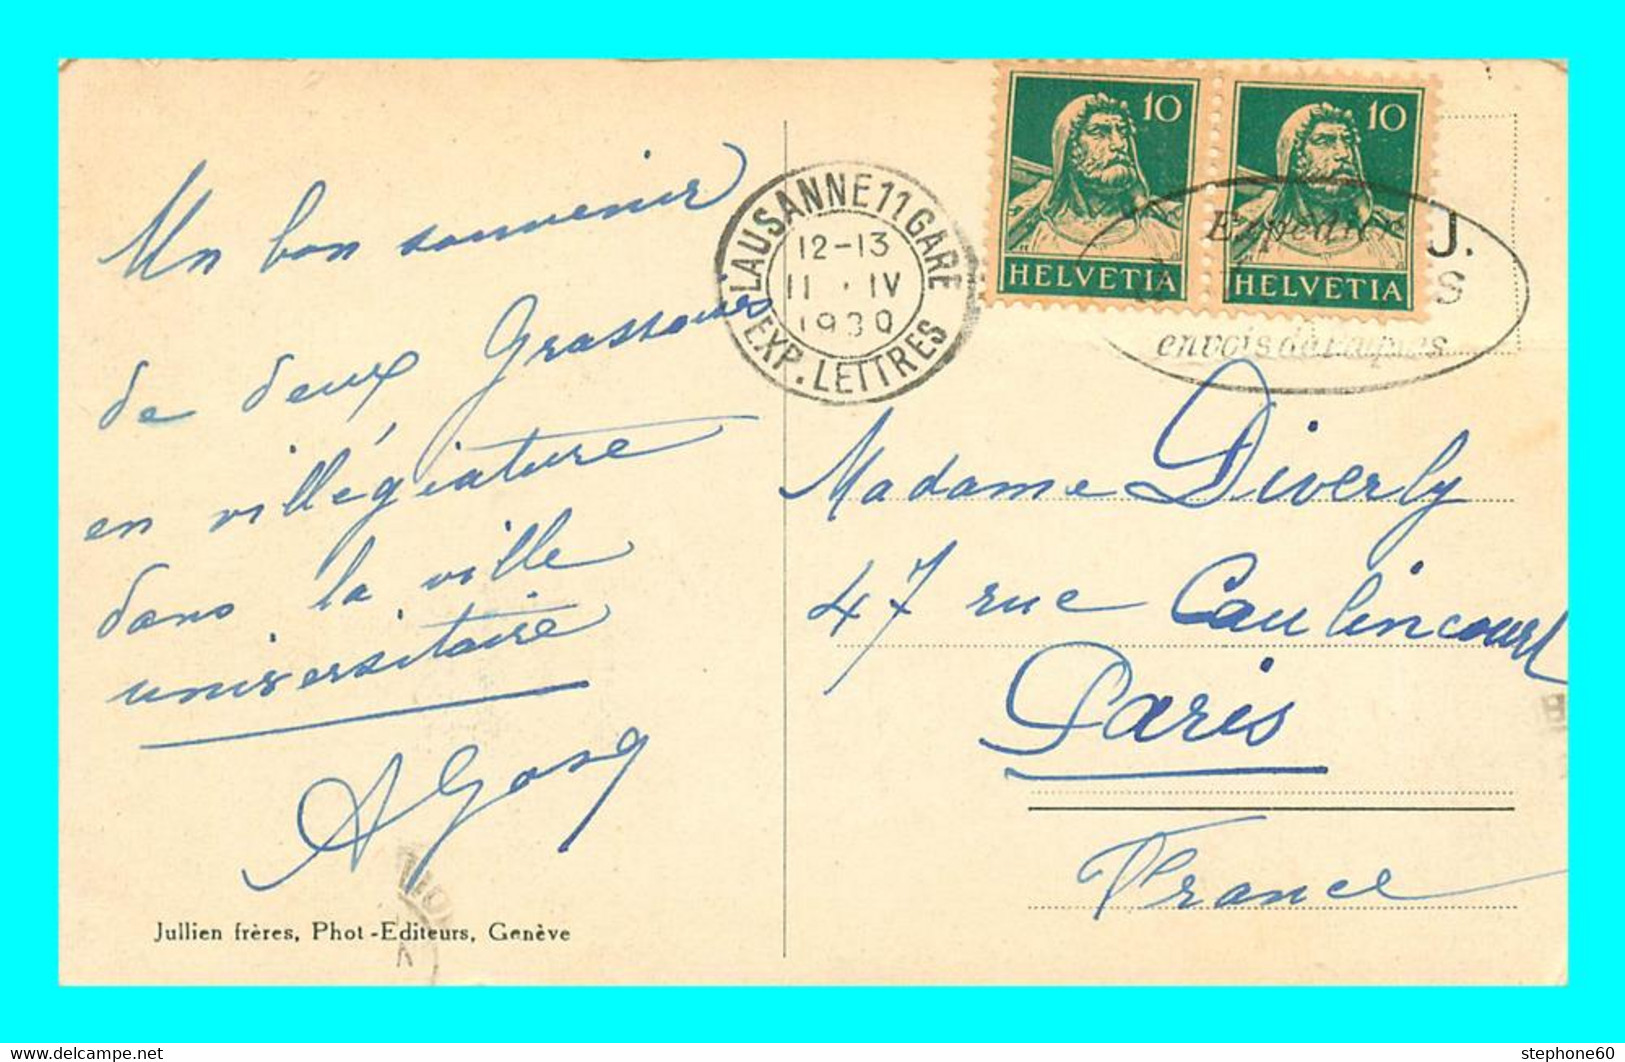 Un bon souvenir
de deux Grassouies
en villégiature
dans la ville
universitaire
Jullien frères, Phot-Editeurs, Genève
LAUSANNE 11 GARE
12-13
11 · IV
1930
EXP. LETTRES
10
HELVETIA
10
HELVETIA
Expédiez
J.
S
envois de
Madame Diverly
47 rue Caulincourt
Paris
France
www.delcampe.net
stephone60